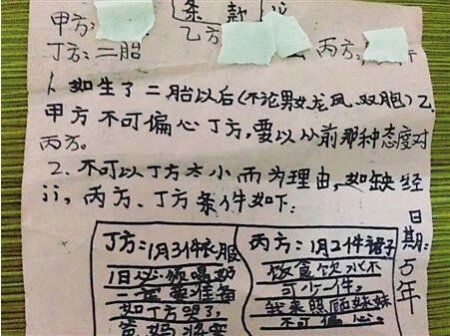 条款
甲方: 乙方 丙方:
丁方:二胎
1、如生了二胎以后(不论男女龙凤、双胞)乙
甲方不可偏心丁方,要以从前那种态度对
丙方。
2、不可以丁方太小而为理由,如缺经
济,丙方、丁方条件如下:
丁方:1月3件衣服
1日必须喝奶
一定要准备
如丁方哭了,
爸妈将要
丙方:1月2件裙子
饭食饮水不
可少一件,
我来照顾妹妹
不可偏心。
日期:5年